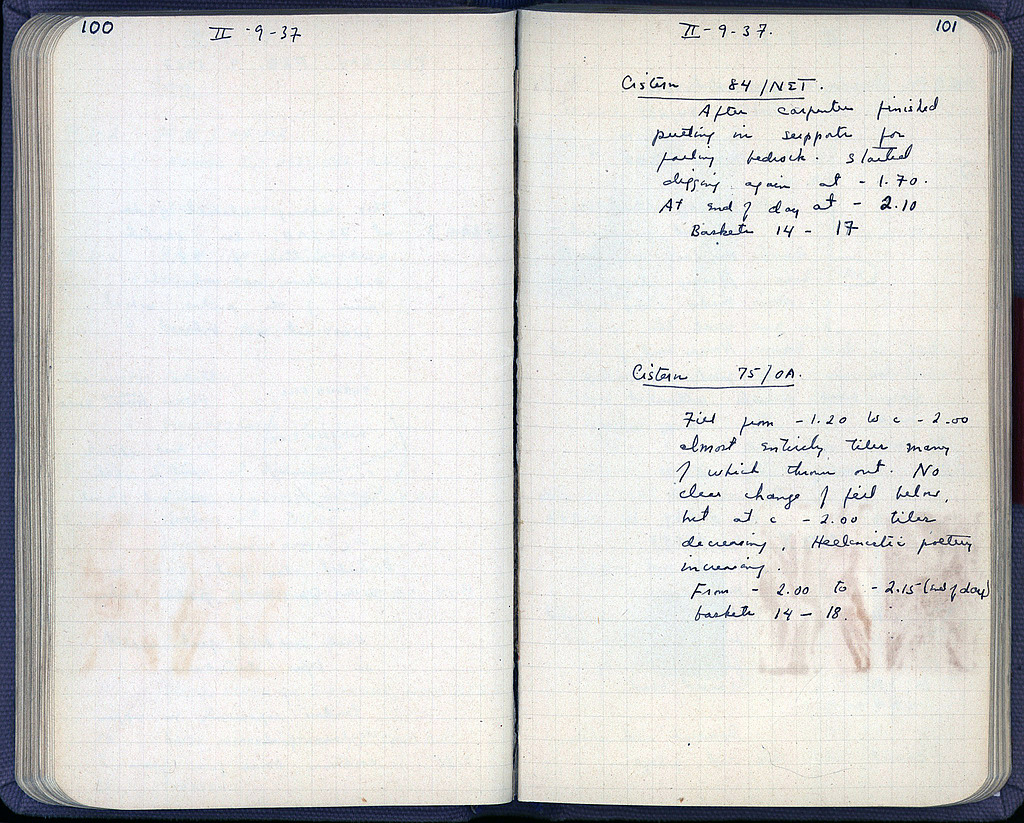 100
II - 9 - 37
II - 9 - 37.
101
Cistern 84/NΣT.
After carpenter finished
putting in supports for
failing bedrock. started
digging again at - 1.70.
At end of day at - 2.10
Baskets 14 - 17
Cistern 75/OA.
Fill from - 1.20 to c - 2.00
almost entirely tiles many
of which thrown out. No
clear change of fill below,
but at c - 2.00 tiles
decreasing, Hellenistic pottery
increasing.
From - 2.00 to - 2.15 (end of day)
baskets 14 - 18.